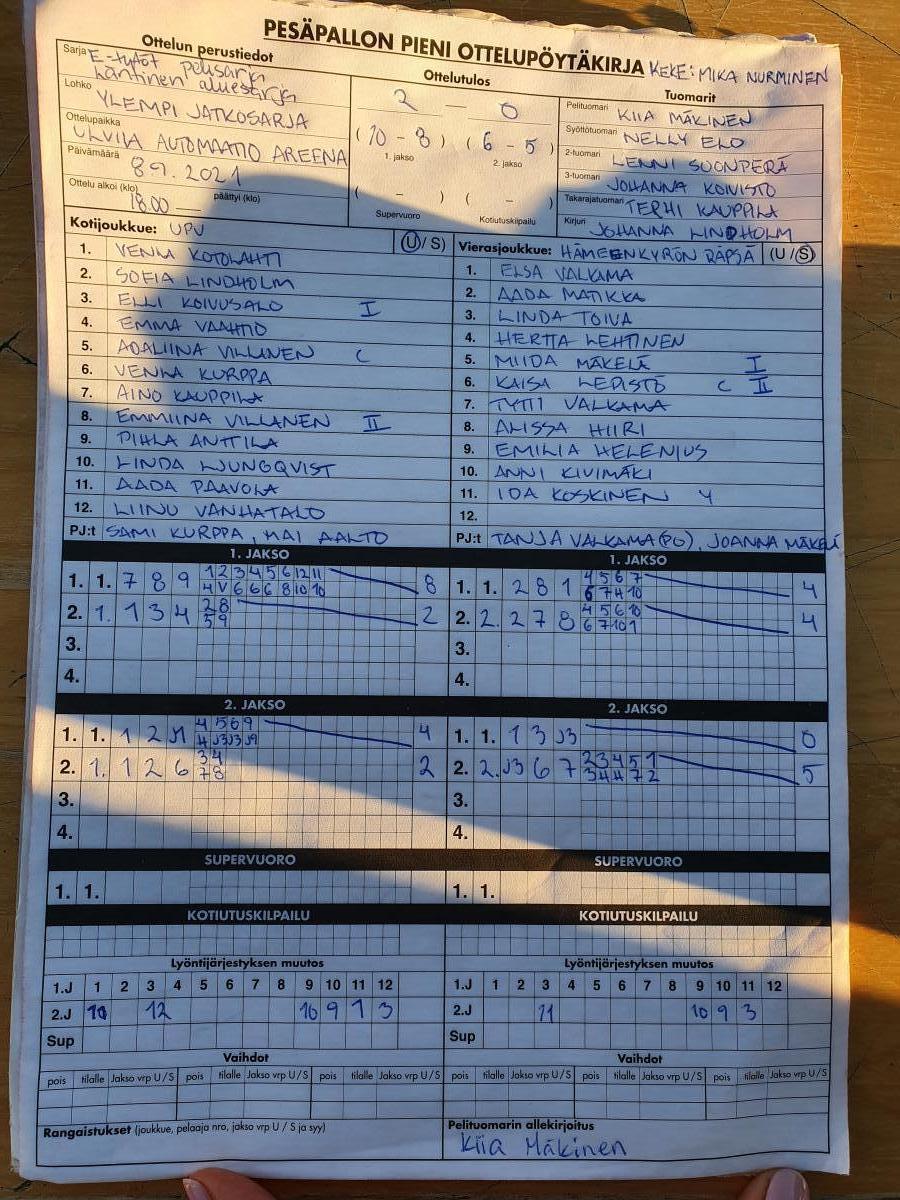 PESÄPALLON PIENI OTTELUPÖYTÄKIRJA KEKE: MIKA NURMINEN
Ottelun perustiedot
Sarja E-tytöt pelisarja
läntinen aluesarja
Lohko YLEMPI JATKOSARJA
Ottelupaikka ULVILA AUTOMAATIO AREENA
Päivämäärä 8 9. 2021
Ottelu alkoi (klo) 18.00 päättyi (klo)
Ottelutulos
2 – 0
(10 - 8) (6 - 5)
1. jakso 2. jakso
( - ) ( - )
Supervuoro Kotiutuskilpailu
Tuomarit
Pelituomari KIIA MÄKINEN
Syöttötuomari NELLY ELO
2-tuomari LENNI SUONPERÄ
3-tuomari JOHANNA KOIVISTO
Takarajatuomari TERHI KAUPPILA
Kirjuri JOHANNA LINDHOLM
Kotijoukkue: UPV (U/S)
1. VENLA KOTOLAHTI
2. SOFIA LINDHOLM
3. ELLI KOIVUSALO I
4. EMMA VAAHTIO
5. ADALIINA VILLANEN C
6. VENLA KURPPA
7. AINO KAUPPILA
8. EMMIINA VILLANEN II
9. PIHLA ANTTILA
10. LINDA LJUNGQVIST
11. AADA PAAVOLA
12. LIINU VANHATALO
PJ:t SAMI KURPPA, MAI AALTO
Vierasjoukkue: HÄMEENKYRÖN RÄPSÄ (U/S)
1. ELSA VALKAMA
2. AADA MATIKKA
3. LINDA TOIVA
4. HERTTA LEHTINEN
5. MIIDA MÄKELÄ I
6. KAISA LEPISTÖ C II
7. TYTTI VALKAMA
8. ALISSA HIIRI
9. EMILIA HELENIUS
10. ANNI KIVIMÄKI
11. IDA KOSKINEN Y
12.
PJ:t TANJA VALKAMA (PO), JOANNA MÄKELÄ
1. JAKSO
1. 1. 7 8 9 1 2 3 4 5 6 12 11 8
4 V 6 6 6 8 10 10
2. 1. 1 3 4 2 8 2
5 9
3.
4.
1. JAKSO
1. 1. 2 8 1 4 5 6 7 4
6 7 4 10
2. 2. 2 7 8 4 5 6 10 4
6 7 10 1
3.
4.
2. JAKSO
1. 1. 1 2 J1 4 5 6 9 4
4 J3 J3 J9
2. 1. 1 2 6 3 4 2
7 8
3.
4.
2. JAKSO
1. 1. 1 3 J3 0
2. 2. J3 6 7 2 3 4 5 1 5
3 4 4 7 2
3.
4.
SUPERVUORO
1. 1.
SUPERVUORO
1. 1.
KOTIUTUSKILPAILU
KOTIUTUSKILPAILU
Lyöntijärjestyksen muutos
1.J 1 2 3 4 5 6 7 8 9 10 11 12
2.J 12 10 9 1 3
Sup
Lyöntijärjestyksen muutos
1.J 1 2 3 4 5 6 7 8 9 10 11 12
2.J 11 10 9 3
Sup
Vaihdot
pois tilalle Jakso vrp U/S pois tilalle Jakso vrp U/S pois tilalle Jakso vrp U/S
Vaihdot
pois tilalle Jakso vrp U/S pois tilalle Jakso vrp U/S pois tilalle Jakso vrp U/S
Rangaistukset (joukkue, pelaaja nro, jakso vrp U / S ja syy)
Pelituomarin allekirjoitus
Kiia Mäkinen